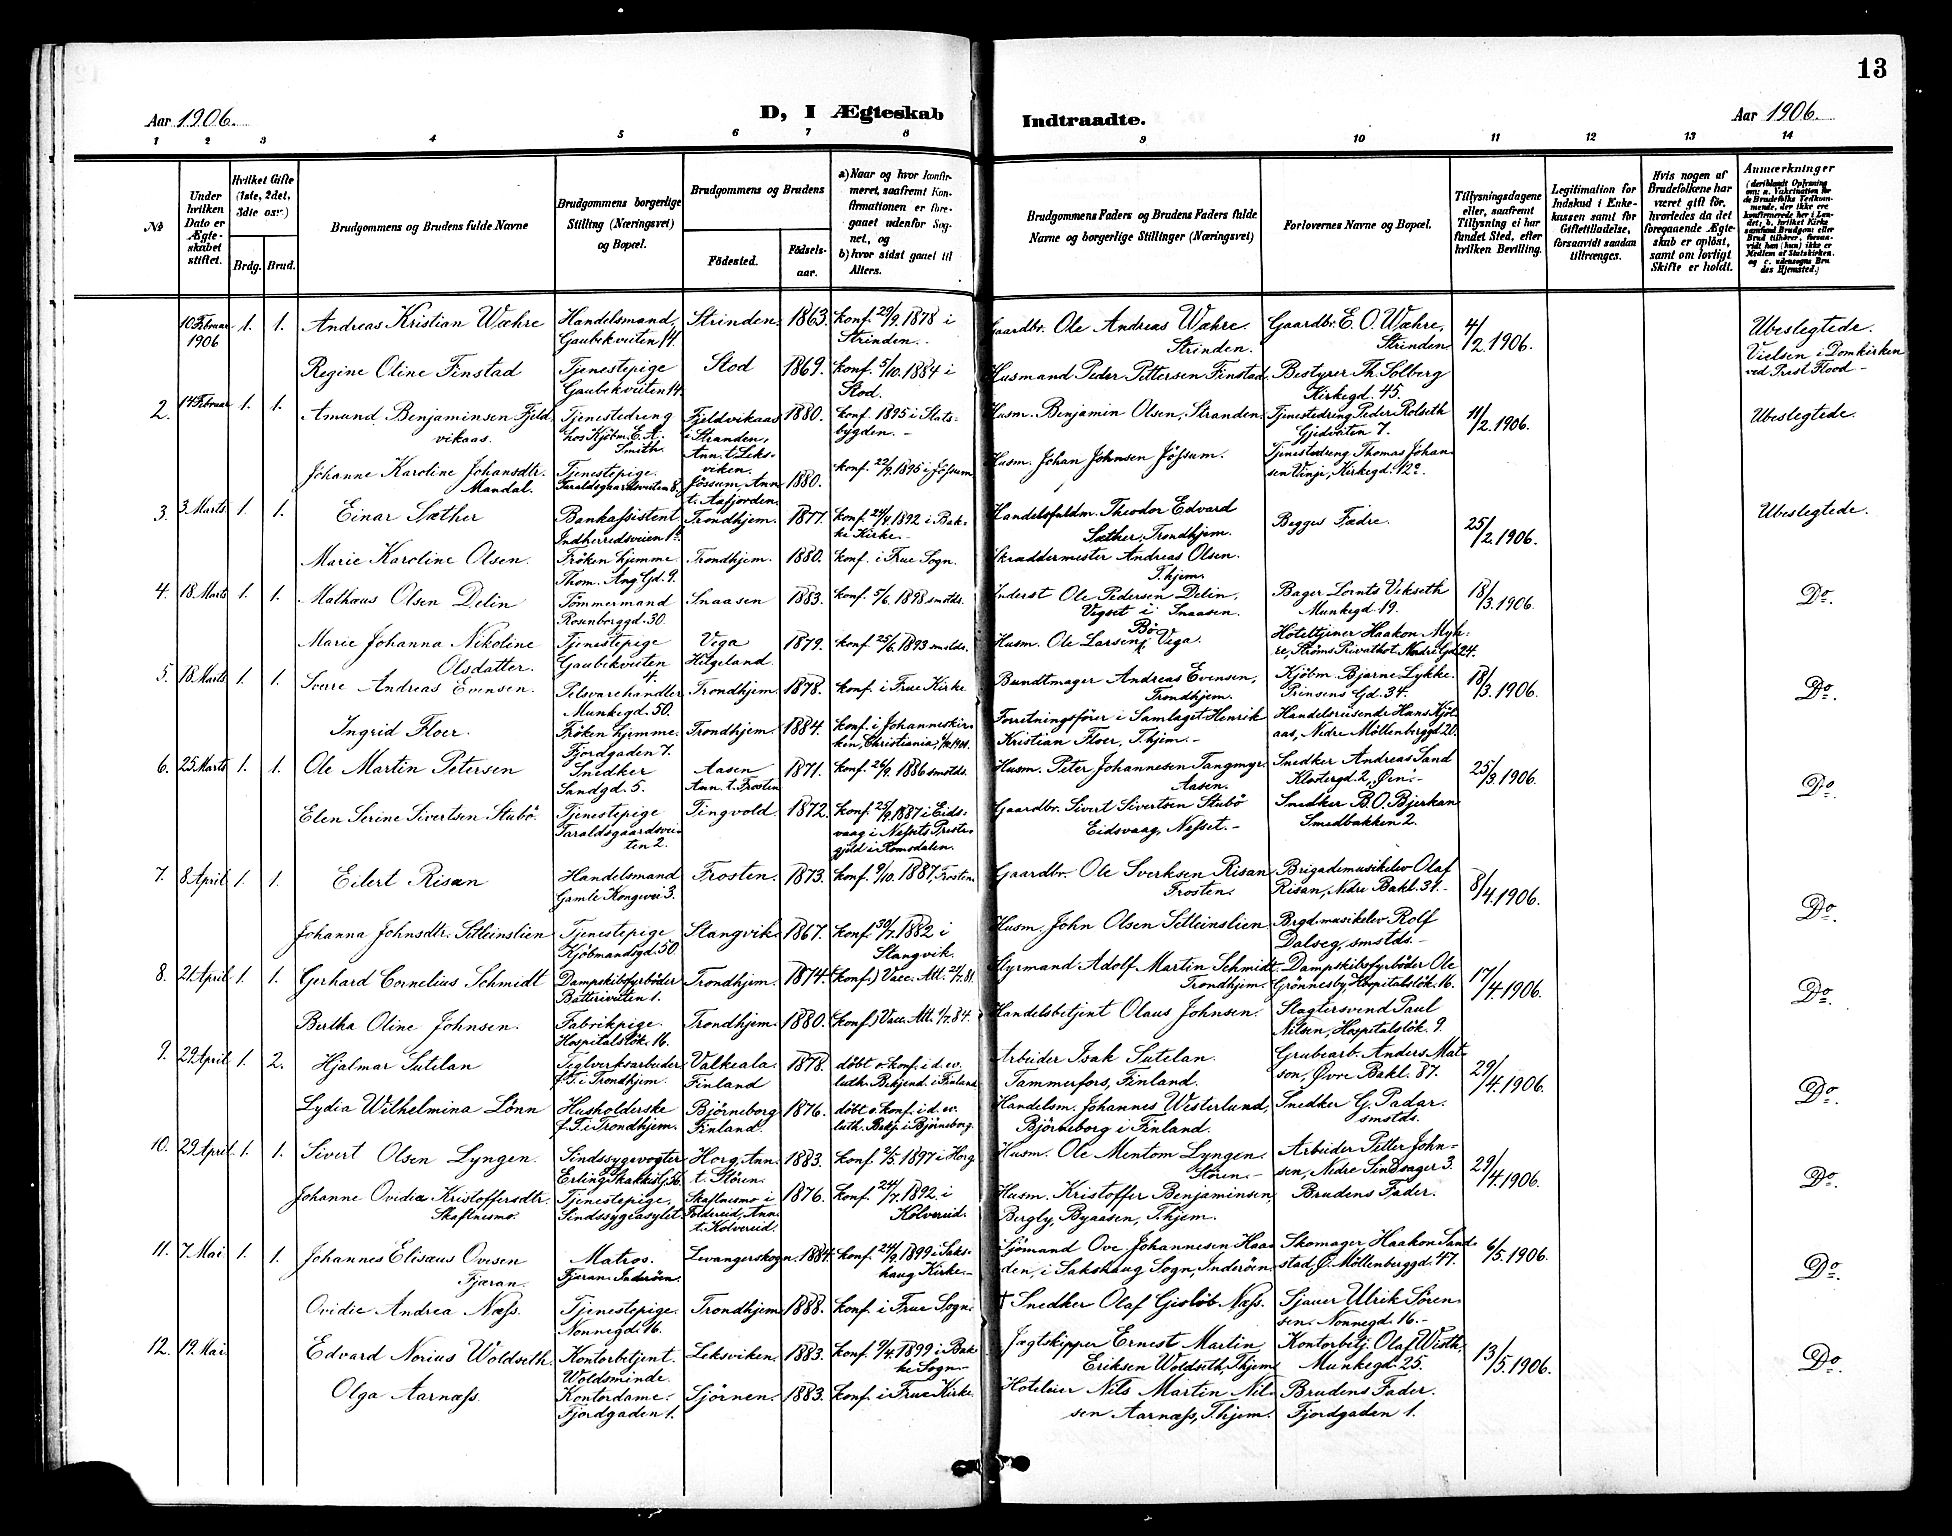 13
Aar 1906.
D, I Ægteskab
Indtraadte.
Aar 1906.
1 2 3 4 5 6 7 8 9 10 11 12 13 14
№
Under
hvilken
Dato er
Ægte-
skabet
stiftet.
Hvilket Gifte
(1ste, 2det,
3die osv.)
Brdg. Brud.
Brudgommens og Brudens fulde Navne
Brudgommens borgerlige
Stilling (Næringsvei)
og Bopæl.
Brudgommens og Brudens
Födested.
Födsels-
aar.
a) Naar og hvor konfir-
meret, saafremt Kon-
firmationen er fore-
gaaet udenfor Sog-
net, og
b) hvor sidst gaaet til
Alters.
Brudgommens Faders og Brudens Faders fulde
Navne og borgerlige Stillinger (Næringsvei)
Forlovernes Navne og Bopæl.
Tillysningsdagene
eller, saafremt
Tillysning ei har
fundet Sted, efter
hvilken Bevilling.
Legitimation for
Indskud i Enke-
kassen samt for
Giftetilladelse,
forsaavidt saadan
tiltrænges.
Hvis nogen af
Brudefolkene har
været gift för,
hvorledes da det
foregaaende Ægte-
skab er oplöst,
samt om lovligt
Skifte er holdt.
Anmærkninger
(deriblandt Oplysning
om: a. Vakcination for
de Brudefolks Vedkom-
mende, der ikke ere
konfirmerede her i Lan-
det; b. hvilket Kirke
samfund Brudgom eller
Brud tilhörer, forsaa-
vidt han (hun) ikke er
Medlem af Statskirken.
og c. udensogns Bru
des Hjemsted.)
10 Februar 1906 1. 1. Andreas Kristian Wæhre Handelsmand, Gaubekveiten 14. Strinden. 1863. konf. 29/9. 1878 i Strinden. Gaardbr. Ole Andreas Wæhre. Strinden. Gaardbr. E. O. Wæhre, Strinden 4/2. 1906. Ubeslegtede.
Vielsen i Domkirken
ved Prest Flood
Regine Oline Finstad Tjenestepige Gaubekveiten 14. Stod 1869. konf. 5/10. 1884 i Stod. Husmand Peder Pettersen Finstad. Bestyrer Th. Solberg Kirkegd. 45.
2. 14 Februar 1. 1. Amund Benjaminsen Fjeldvikaas. Tjenestedreng hos Kjöbm. E. A. Smith. Fjeldvikaas i Stranden, Ann. t. Leksviken. 1880. konf. 1895 i Statsbygden. Husm. Benjamin Olsen, Stranden. Tjenestedreng Peder Rolseth Gjedveiten 7. 11/2. 1906. Ubeslegtede.
Johanne Karoline Johansdtr. Mandal. Tjenestepige. Taraldsgaardsveiten 8. Jössum, Ann. t. Aafjorden. 1880. konf. 22/9. 1895 i Jössum Husm. Johan Johnsen Jössum. Tjenestedreng Thomas Johansen Vinje, Kirkegd. 12a.
3. 3. Marts 1. 1. Einar Sæther Bankassistent Indherredsveien 1a. Trondhjem. 1877. konf. 24/4. 1892 i Bakke Kirke. Handelsfuldm. Theodor Edvard Sæther, Trondhjem. Begges Fædre. 25/2. 1906. Ubeslegtede.
Marie Karoline Olsen. Fröken hjemme Thom. Ang. Gd. 9. Trondhjem. 1880. konf. i Frue Sogn. Skræddermester Andreas Olsen. T.hjem.
4. 18. Marts 1. 1. Mathæus Olsen Delin Tömmermand Rosenborggd. 30. Snaasen 1883. konf. 5/6. 1898 smstds. Inderst Ole Pedersen Delin, Vegset i Snaasen. Bager Lornts Vekseth Munkegd. 19. 18/3. 1906. Do.
Marie Johanna Nikoline Olsdatter. Tjenestepige Gaubekveiten 4. Vega Helgeland. 1879. konf. 25/6. 1893 smstds. Husm. Ole Larsen, Bö Vega. Hoteltjener Haakon Myhre, Ströms Privathot. Nordre Gd. 24.
5. 18. Marts 1. 1. Sverre Andreas Evensen. Pelsvarehandler Munkegd. 50. Trondhjem. 1878. konf. i Frue Kirke Bundtmager Andreas Evensen, Trondhjem. Kjöbm. Bjarne Lykke. Prinsens Gd. 34. 18/3. 1906. Do.
Ingrid Floer. Fröken hjemme. Fjordgaden 7. Trondhjem. 1884. konf. i Johanneskirken, Christiania, Forretningsförer i Samlaget Henrik Kristian Floer, T.hjem. Handelsreisende Hans Kjölaas, Nedre Möllenberggd. 20.
6. 25. Marts 1. 1. Ole Martin Petersen Snedker Sandgd. 5. Aasen Ann. t. Frosten 1871. konf. 26/9. 1886 smstds. Husm. Peter Johannesen Tangmyr. Aasen. Snedker Andreas Sand Klostergd. 2, Öen. 25/3. 1906. Do.
Elen Serine Sivertsen Stubö. Tjenestepige Taraldsgaardsveiten 2. Tingvold. 1872. konf. 25/9. 1887 i Eidsvaag i Nessets Prestegjeld i Romsdalen. Gaardbr. Sivert Sivertsen Stubö Eidsvaag, Nesset. Snedker B. O. Bjerkan Smedbakken 2.
7. 8 April 1. 1. Eilert Risan Handelsmand Gamle Kongevei 3. Frosten. 1873. konf. 9/10. 1887, Frosten. Gaardbr. Ole Sverksen Risan Frosten. Brigademusikelev Olaf Risan, Nedre Bakl. 31. 8/4. 1906. Do.
Johanna Johnsdtr. Sitleinslien Tjenestepige Kjöbmandsgd. 50 Stangvik. 1867. konf. 30/7. 1882 i Stangvik. Husm. John Olsen Sitleinslien Brgd. musikelev Rolf Dalseg, smstds.
8. 21. April 1. 1. Gerhard Cornelius Schmidt Dampskibsfyrböder Batteriveiten 1. Trondhjem. 1874. (konf.) Vacc. Att. 2/7. 81. Styrmand Adolf Martin Schmidt. Trondhjem. Dampskibsfyrböder Ole Grönnesby, Hospitalslök. 16. 17/4. 1906. Do.
Bertha Oline Johnsen. Fabrikpige. Hospitalslök. 16. Trondhjem. 1880. (konf.) Vacc. Att. 1/7. 84. Handelsbetjent Olaus Johnsen. Slagtersvend Paul Nilsen, Hospitalslök. 9.
9. 29. April 1. 2. Hjalmar Sutelan Teglverksarbeider f. T. i Trondhjem. Valkeala. Finland 1878. döbt o. konf. i d. ev. luth. Bekjend. i Finland Arbeider Isak Sutelan. Tammerfors, Finland. Grubearb. Anders Matson, Övre Bakl. 87. 29/4. 1906. Do.
Lydia Wilhelmina Lönn Husholderske f. T. i Trondhjem. Björneborg Finland. 1876. döbt o. konf. i d. ev. luth. Bekj. i Björneborg. Handelsm. Johannes Westerlund, Björneborg i Finland. Snedker G. Padar. smstds.
10. 29. April 1. 1. Sivert Olsen Lyngen. Sindssygevogter Erling Skakkesgd. 56. Horg, Ann. t. Stören. 1883. konf. 2/5. 1897 i Horg Husm. Ole Mentom Lyngen. Stören. Arbeider Petter Johnsen, Nedre Sindsager 3. 29/4. 1906. Do.
Johanne Ovidie Kristoffersdtr. Skaflnesmo. Tjenestepige, Sindssygeasylet. Skaflnesmo i Foldereid, Ann. t. Kolvereid. 1876. konf. 24/7. 1892 i Kolvereid. Husm. Kristoffer Benjaminsen, Bergly, Byaasen, T.hjem. Brudens Fader.
11. 7. Mai 1. 1. Johannes Elisæus Ovesen Fjæran. Matros. Fjæran. Inderöen. Levangerskogn. 1884. konf. 24/9. 1899 i Sakshaug Kirke. Sjömand Ove Johannesen Haaden, i Sakshaug Sogn, Inderöen Skomager Haakon Sandstad, Ö. Möllenberggd. 47. 6/5. 1906. Do.
Ovidie Andrea Næss. Tjenestepige. Nonnegd. 16. Trondhjem. 1888. konf. i Frue Sogn. † Snedker Olaf Gisløb Næss. Sjauer Ulrik Sörensen. Nonnegd. 16.
12. 19. Mai Edvard Norius Woldseth. Kontorbetjent. Woldsminde. Leksviken. 1883. konf. 9/4. 1899 i Bakke Sogn. Jagtskipper Ernest Martin Eriksen Woldseth, T.hjem. Kontorbetj. Olaf Wisth, Munkegd. 25. 13/5. 1906. Do.
Olga Aarnæss. Kontordame. Fjordgaden 1. Sjörnen. 1883. konf. i Frue Kirke Hoteleier Nils Martin Nilsen Aarnæss, T.hjem. Brudens Fader. Fjordgaden 1.